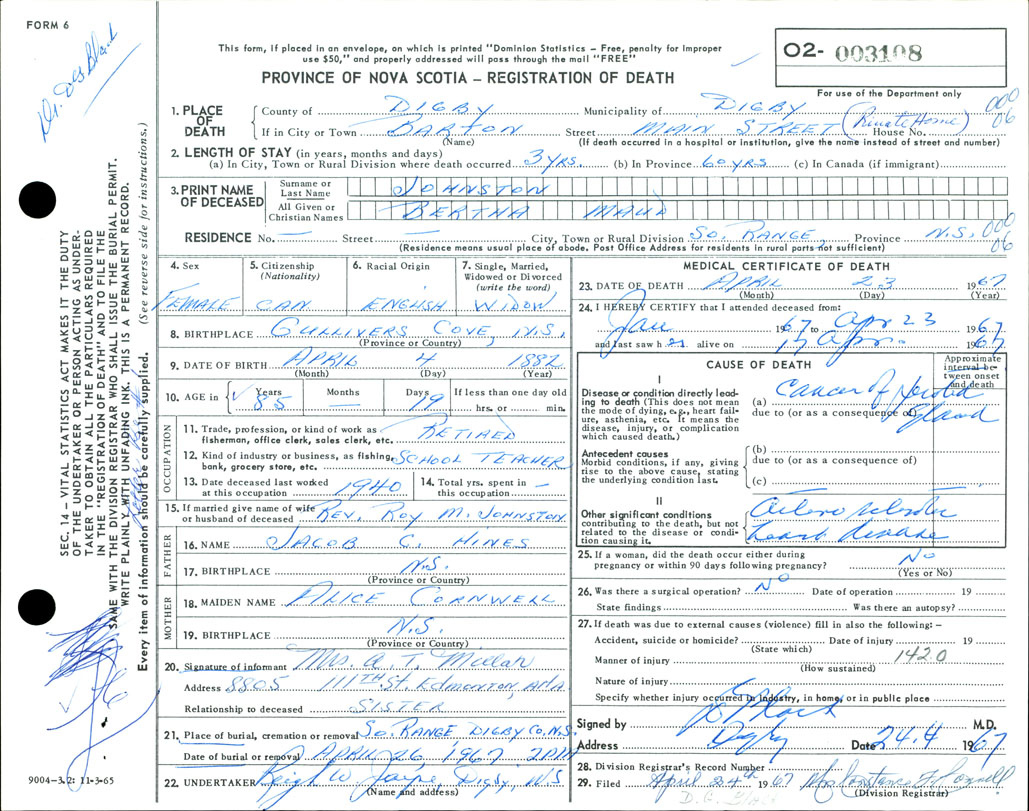 FORM 6
Dr. DG Black
This form, if placed in an envelope, on which is printed "Dominion Statistics – Free, penalty for improper
use $50," and properly addressed will pass through the mail "FREE"
PROVINCE OF NOVA SCOTIA – REGISTRATION OF DEATH
O2- 003108
For use of the Department only
000
06
1. PLACE OF DEATH County of DIGBY Municipality of DIGBY
If in City or Town BARTON Street MAIN STREET (Private Home) House No.
(Name) (If death occurred in a hospital or institution, give the name instead of street and number)
2. LENGTH OF STAY (in years, months and days)
(a) In City, Town or Rural Division where death occurred 3 YRS. (b) In Province 60 YRS (c) In Canada (if immigrant)
3. PRINT NAME OF DECEASED
Surname or Last Name JOHNSTON
All Given or Christian Names BERTHA MAUD
RESIDENCE No. — Street — City, Town or Rural Division SO. RANGE, Province N.S. 000 06
(Residence means usual place of abode. Post Office Address for residents in rural parts not sufficient)
4. Sex FEMALE
5. Citizenship (Nationality) CAN.
6. Racial Origin ENGLISH
7. Single, Married, Widowed or Divorced (write the word) WIDOW
8. BIRTHPLACE GULLIVERS COVE, N.S.
(Province or Country)
9. DATE OF BIRTH APRIL 4 1882
(Month) (Day) (Year)
10. AGE in Years 85 Months — Days 19 If less than one day old hrs. or min.
OCCUPATION
11. Trade, profession, or kind of work as fisherman, office clerk, sales clerk, etc. RETIRED
12. Kind of industry or business, as fishing, bank, grocery store, etc. SCHOOL TEACHER
13. Date deceased last worked at this occupation 1940
14. Total yrs. spent in this occupation —
15. If married give name of wife or husband of deceased REV. ROY M. JOHNSTON
FATHER
16. NAME JACOB C. HINES
17. BIRTHPLACE N.S.
(Province or Country)
MOTHER
18. MAIDEN NAME ALICE CORNWELL
19. BIRTHPLACE N.S.
(Province or Country)
20. Signature of informant Mrs. A. T.
Address 8805 111TH St. Edmonton, Alta
Relationship to deceased SISTER
21. Place of burial, cremation or removal SO. RANGE DIGBY CO. N.S.
Date of burial or removal APRIL 26, 1967 2 PM
22. UNDERTAKER W. Jayne, Digby, N.S.
(Name and address)
MEDICAL CERTIFICATE OF DEATH
23. DATE OF DEATH APRIL 23 1967
(Month) (Day) (Year)
24. I HEREBY CERTIFY that I attended deceased from:
Jan 1967 to Apr 23 1967
and last saw h er alive on 17 Apr. 1967
CAUSE OF DEATH
Approximate interval between onset and death
I
Disease or condition directly leading to death (This does not mean the mode of dying, e.g., heart failure, asthenia, etc. It means the disease, injury, or complication which caused death.)
(a) Cancer of Parotid
due to (or as a consequence of) Gland
Antecedent causes
Morbid conditions, if any, giving rise to the above cause, stating the underlying condition last.
(b)
due to (or as a consequence of)
(c)
II
Other significant conditions contributing to the death, but not related to the disease or condition causing it.
heart disease
25. If a woman, did the death occur either during pregnancy or within 90 days following pregnancy? No
(Yes or No)
26. Was there a surgical operation? No Date of operation 19
State findings Was there an autopsy?
27. If death was due to external causes (violence) fill in also the following: –
Accident, suicide or homicide? Date of injury 19
(State which)
Manner of injury 142.0
(How sustained)
Nature of injury
Specify whether injury occurred in industry, in home, or in public place
Signed by DG Black M.D.
Address Digby Date 24.4 1967
28. Division Registrar's Record Number
29. Filed April 24th 1967 Mrs Constance F. Connell
(Division Registrar)
D.G. Black
SEC. 14 – VITAL STATISTICS ACT MAKES IT THE DUTY
OF THE UNDERTAKER OR PERSON ACTING AS UNDER-
TAKER TO OBTAIN ALL THE PARTICULARS REQUIRED
IN THE "REGISTRATION OF DEATH" AND TO FILE THE
SAME WITH THE DIVISION REGISTRAR WHO SHALL ISSUE THE BURIAL PERMIT.
WRITE PLAINLY WITH UNFADING INK. THIS IS A PERMANENT RECORD.
Every item of information should be carefully supplied. (See reverse side for instructions.)
9004-3.2: 11-3-65